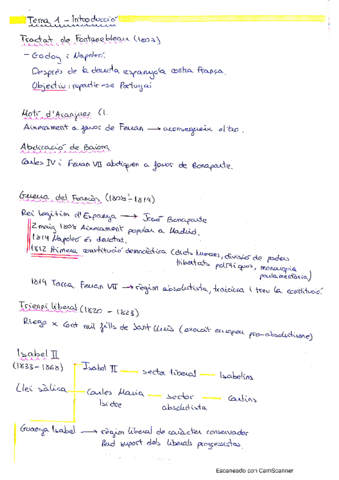 Tema 1 - Introducció
Tractat de Fontainebleau (1807)
- Godoy i Napoleó.
Després de la derrota espanyola contra França.
Objectiu: repartir-se Portugal
Motí d'Aranjuez (1.
Aixecament a favor de Ferran → aconsegueix el tro.
Abdicació de Baiona
Carles IV i Ferran VII abdiquen a favor de Bonaparte.
Guerra del Francès (1808-1814)
Rei legítim d'Espanya → José Bonaparte
2 maig 1808 Aixecament popular a Madrid.
1814 Napoleó és derrotat.
1812 Primera constitució democràtica (drets humans, divisió de poders
llibertats polítiques, monarquia
parlamentària)
1814 Torna Ferran VII → règim absolutista, traiciona i treu la constitució
Trienni liberal (1820 - 1823)
Riego x Cent mil fills de Sant Lluís (exèrcit europeu pro-absolutisme)
Isabel II
(1833-1868)
Isabel II — sector liberal — Isabelins
Llei sàlica
Carles Maria — sector — Carlins
Isidre absolutista
Guanya Isabel → règim liberal de caràcter conservador
Perd suport dels liberals progressistes.
Escaneado con CamScanner